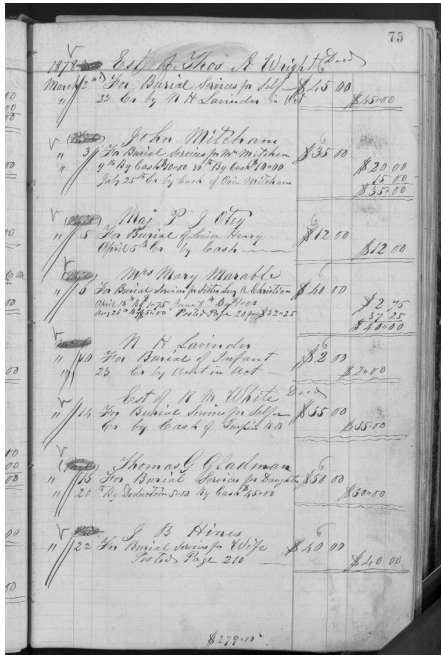 75
1878 Est of Thos A Wright Decd
March 2nd For Burial Services for Self $45 00
" 23 Cr by N H Lavinder in Act $45 00
John Mitcham
" 3 For Burial Services for Mrs Mitcham $35 00
By Cash $10 00 By Cash 10 00 $20 00
July 25th Cr by Cash of Mitcham 15 00
$35 00
Maj P J Otey
" 5 For Burial of Henry $12 00
April 5th Cr by Cash $12 00
Mrs Mary Marable
" 6 For Burial Services for Christian $40 00
April 16th By $2 75 $2 75
Aug 25th Posted Page 37 25
$40 00
N H Lavinder
" 10 For Burial of Infant $2 00
" 23 Cr by in Act $2 00
Est of R M White Decd
" 14 For Burial Services for Self $55 00
Cr by Cash of $55 00
Thomas G Gladman
" 15 For Burial Services for Daughter $50 00
" 20 By Deduction 5 00 By Cash 45 00 $50 00
J B Hines
" 22 For Burial Services for Wife $40 00
Posted Page 210 $40 00
$279 00